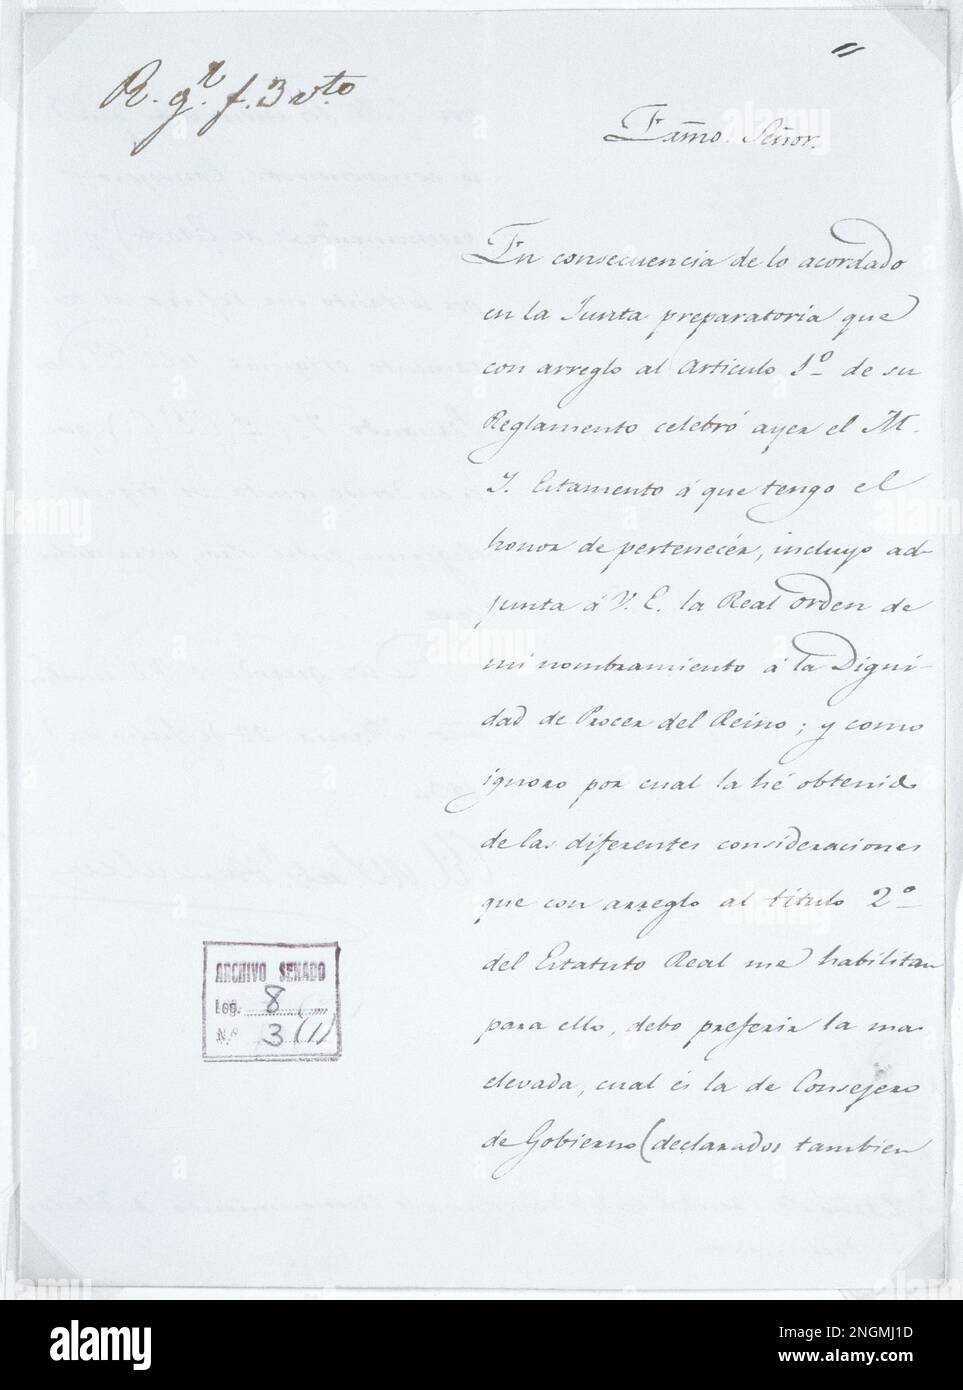 R. gᵗ. f. 3 vᵗᵒ
Exmo. Señor.
En consecuencia de lo acordado
en la Junta preparatoria que
con arreglo al Articulo 1º de su
Reglamento celebró ayer el M.
Y. Estamento á que tengo el
honor de pertenecér, incluyo ad-
junta á V. E. la Real orden de
mi nombramiento á la Digni-
dad de Procer del Reino; y como
ignoro por cual la hé obtenido
de las diferentes consideraciones
que con arreglo al título 2º
del Estatuto Real me habilitan
para ello, debo preferir la mas
elevada, cual és la de Consejero
de Gobierno (declarados tambien
ARCHIVO SENADO
Leg. 8
N.º 3 (1)
alamy
Image ID: 2NGMJ1D
www.alamy.com